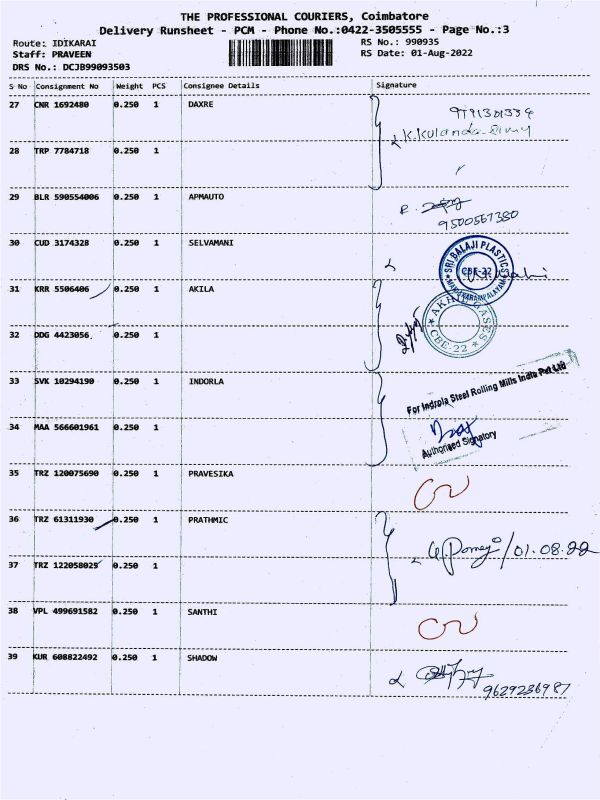 THE PROFESSIONAL COURIERS, Coimbatore
Delivery Runsheet - PCM - Phone No.:0422-3505555 - Page No.:3
Route: IDIKARAI RS No.: 990935
Staff: PRAVEEN RS Date: 01-Aug-2022
DRS No.: DCJB99093503
S No Consignment No Weight PCS Consignee Details Signature
27 CNR 1692480 0.250 1 DAXRE
K.Kulanda
28 TRP 7784718 0.250 1
29 BLR 590554006 0.250 1 APMAUTO
9500567380
30 CUD 3174328 0.250 1 SELVAMANI
SRI BALAJI PLASTICS
CBE-22
31 KRR 5506406 0.250 1 AKILA
32 DDG 4423056 0.250 1
CBE-22
33 SVK 10294190 0.250 1 INDORLA
For Indrola Steel Rolling Mills India Pvt Ltd
34 MAA 566601961 0.250 1
Authorised Signatory
35 TRZ 120075690 0.250 1 PRAVESIKA
36 TRZ 61311930 0.250 1 PRATHMIC
/01.08.22
37 TRZ 122058025 0.250 1
38 VPL 499691582 0.250 1 SANTHI
39 KUR 608822492 0.250 1 SHADOW
9629236987